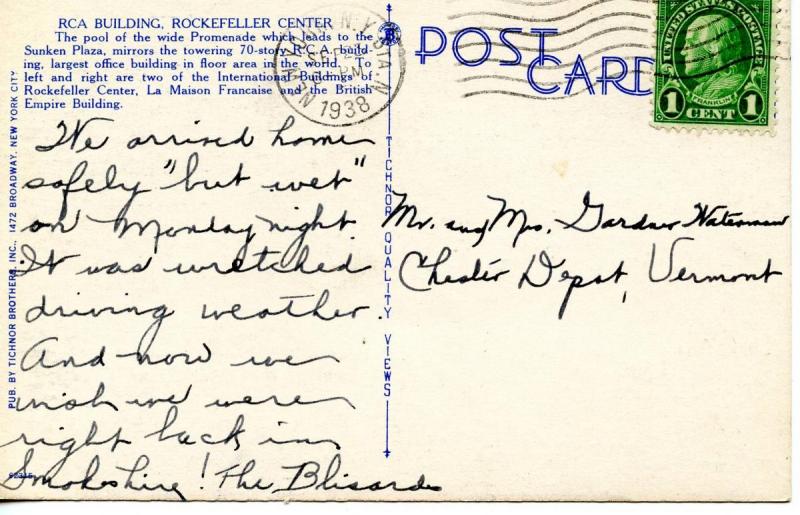 RCA BUILDING, ROCKEFELLER CENTER
The pool of the wide Promenade which leads to the
Sunken Plaza, mirrors the towering 70-story R.C.A. build-
ing, largest office building in floor area in the world. To
left and right are two of the International Buildings of
Rockefeller Center, La Maison Francaise and the British
Empire Building.
We arrived home
safely "but wet"
on Monday night.
It was wretched
driving weather.
And now we
wish we were
right back in
Smokeshire! The Blisards
PUB. BY TICHNOR BROTHERS, INC. 1472 BROADWAY, NEW YORK CITY
TICHNOR QUALITY VIEWS
POST
CARD
NEW YORK, N.Y.
PM
1938
UNITED STATES POSTAGE
FRANKLIN
1 CENT 1
Mr. and Mrs. Gardner Waterman
Chester Depot, Vermont